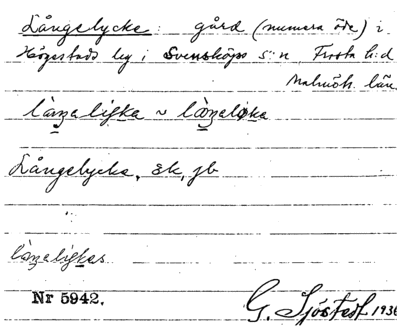 Långelycke: gård (numera öde) i
Högestads by i Svensköps s:n, Frosta h:d
Malmöh. län.
làŋaliʃka ~ làŋaliøka
Långelycke, Ek, jb
làŋaliʃkas
Nr 5942.
G. Sjöstedt 1936